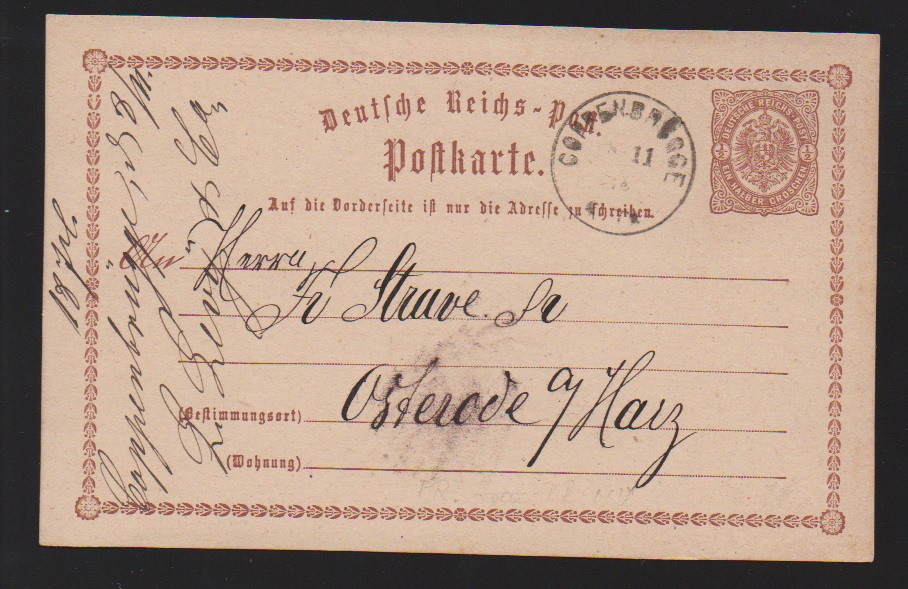 Deutsche Reichs-Post.
Postkarte.
Auf die Vorderseite ist nur die Adresse zu schreiben.
COPPENBRÜGGE
11
DEUTSCHE REICHS-POST
½ ½
EIN HALBER GROSCHEN
An Herrn
Fr Struve Sr
Osterode a/Harz
(Bestimmungsort)
(Wohnung)
Coppenbrügge, d 8/11.